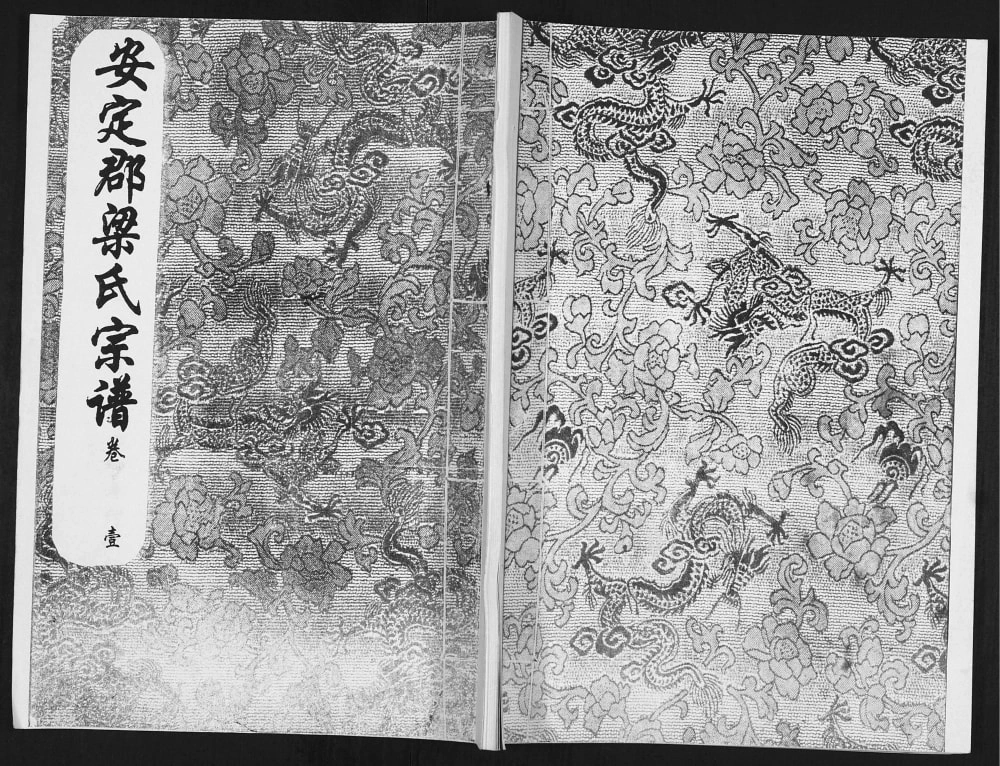 安定郡梁氏宗谱
卷
壹